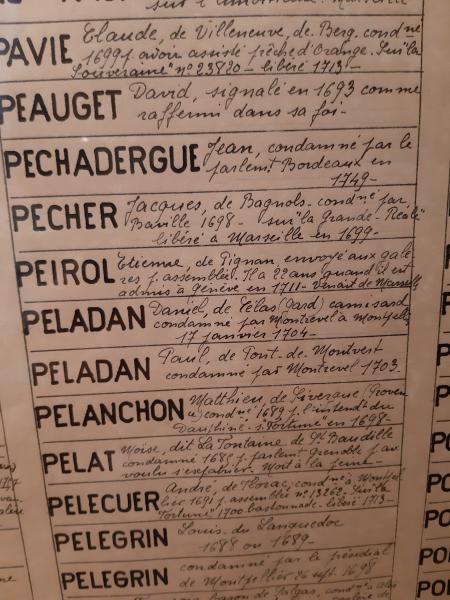 PAVIE Claude, de Villeneuve, de Berg. cond né
1699 p. avoir assisté prêche d'Orange. Sur "la
Souveraine" nº 23820 - libéré 1713 -
PEAUGET David, signalé en 1693 comme
raffermi dans sa foi -
PECHADERGUE Jean, condamné par le
parlemt Bordeaux en
1749 -
PECHER Jacques, de Bagnols - cond né par
Baville 1698 - sur "la Grande - Réale"
libéré à Marseille en 1699 -
PEIROL Etienne, de Pignan, envoyé aux galè
res p. assemblée. Il a 22 ans quand il est
admis à Genève en 1711 - Venait de Marseille
PELADAN Daniel, de (Gard) camisard
condamné par Montrevel à Montpell
17 janvier 1704 -
PELADAN Paul, de Pont-de-Montvert
condamné par Montrevel 1703 -
PELANCHON Matthieu, de (Proven
) cond né 1689 p. l'intend t du
Dauphiné - s. "Fortune" en 1698 -
PELAT Moïse, dit La Fontaine de St Baudille
condamné 1685 p. parlemt Grenoble p. av.
voulu s'expatrier - Mort à la
PELECUER André, de Florac, cond né à Montpel
lier 1691 p. assemblée nº 13262. Sur "la
Fortune" 1700 bastonnade - libéré 1713 -
PELEGRIN Louis - du Languedoc
1688 ou 1689 -
PELEGRIN condamné par le présidial
de Montpellier 26 sept. 1698